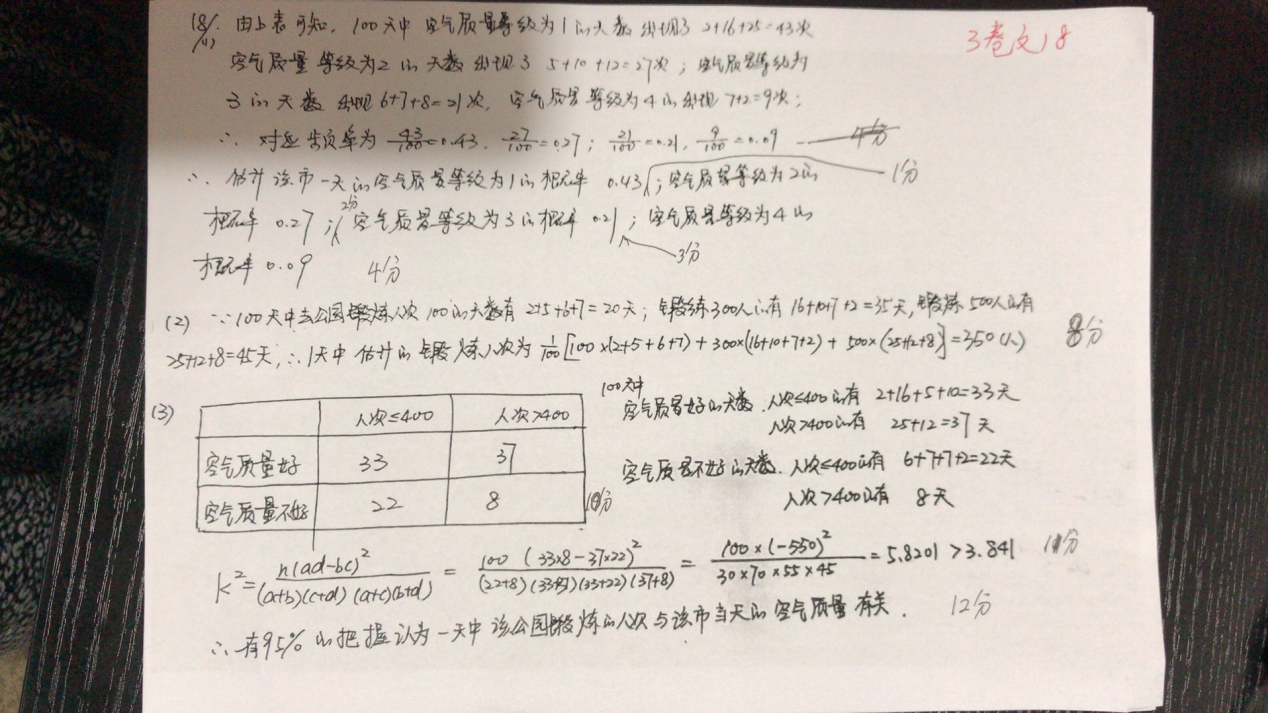 3卷文18
18/. 由上表可知, 100天中 空气质量等级为1的天数 出现了 2+16+25=43次
(1)
空气质量等级为2的天数出现了 5+10+12=27次; 空气质量等级为
3的天数 出现 6+7+8=21次, 空气质量等级为4的出现 7+2=9次;
∴ 对应频率为 43/100=0.43, 27/100=0.27; 21/100=0.21, 9/100=0.09 4分
∴ 估计该市一天的空气质量等级为1的概率 0.43; 空气质量等级为2的 1分
概率 0.27; 空气质量等级为3的概率 0.21; 空气质量等级为4的
2分
3分
概率 0.09 4分
(2) ∵100天中去公园锻炼人次 100的天数有 2+5+6+7=20天; 锻练300人的有 16+10+7+2=35天, 锻炼500人的有
25+12+8=45天, ∴1天中 估计的锻炼人次为 1/100[100×(2+5+6+7)+300×(16+10+7+2)+500×(25+12+8)]=350(人) 8分
(3)
人次≤400 人次>400
空气质量好 33 37
空气质量不好 22 8 10分
100天中
空气质量好的天数. 人次≤400的有 2+16+5+10=33天
人次>400的有 25+12=37天
空气质量不好的天数. 人次≤400的有 6+7+7+2=22天
人次>400的有 8天
K²=n(ad-bc)²/(a+b)(c+d)(a+c)(b+d) = 100(33×8-37×22)²/(22+8)(33+37)(33+22)(37+8) = 100×(-550)²/30×70×55×45 = 5.8201>3.841 11分
∴ 有95%的把握认为一天中该公园锻炼的人次与该市当天的空气质量有关. 12分